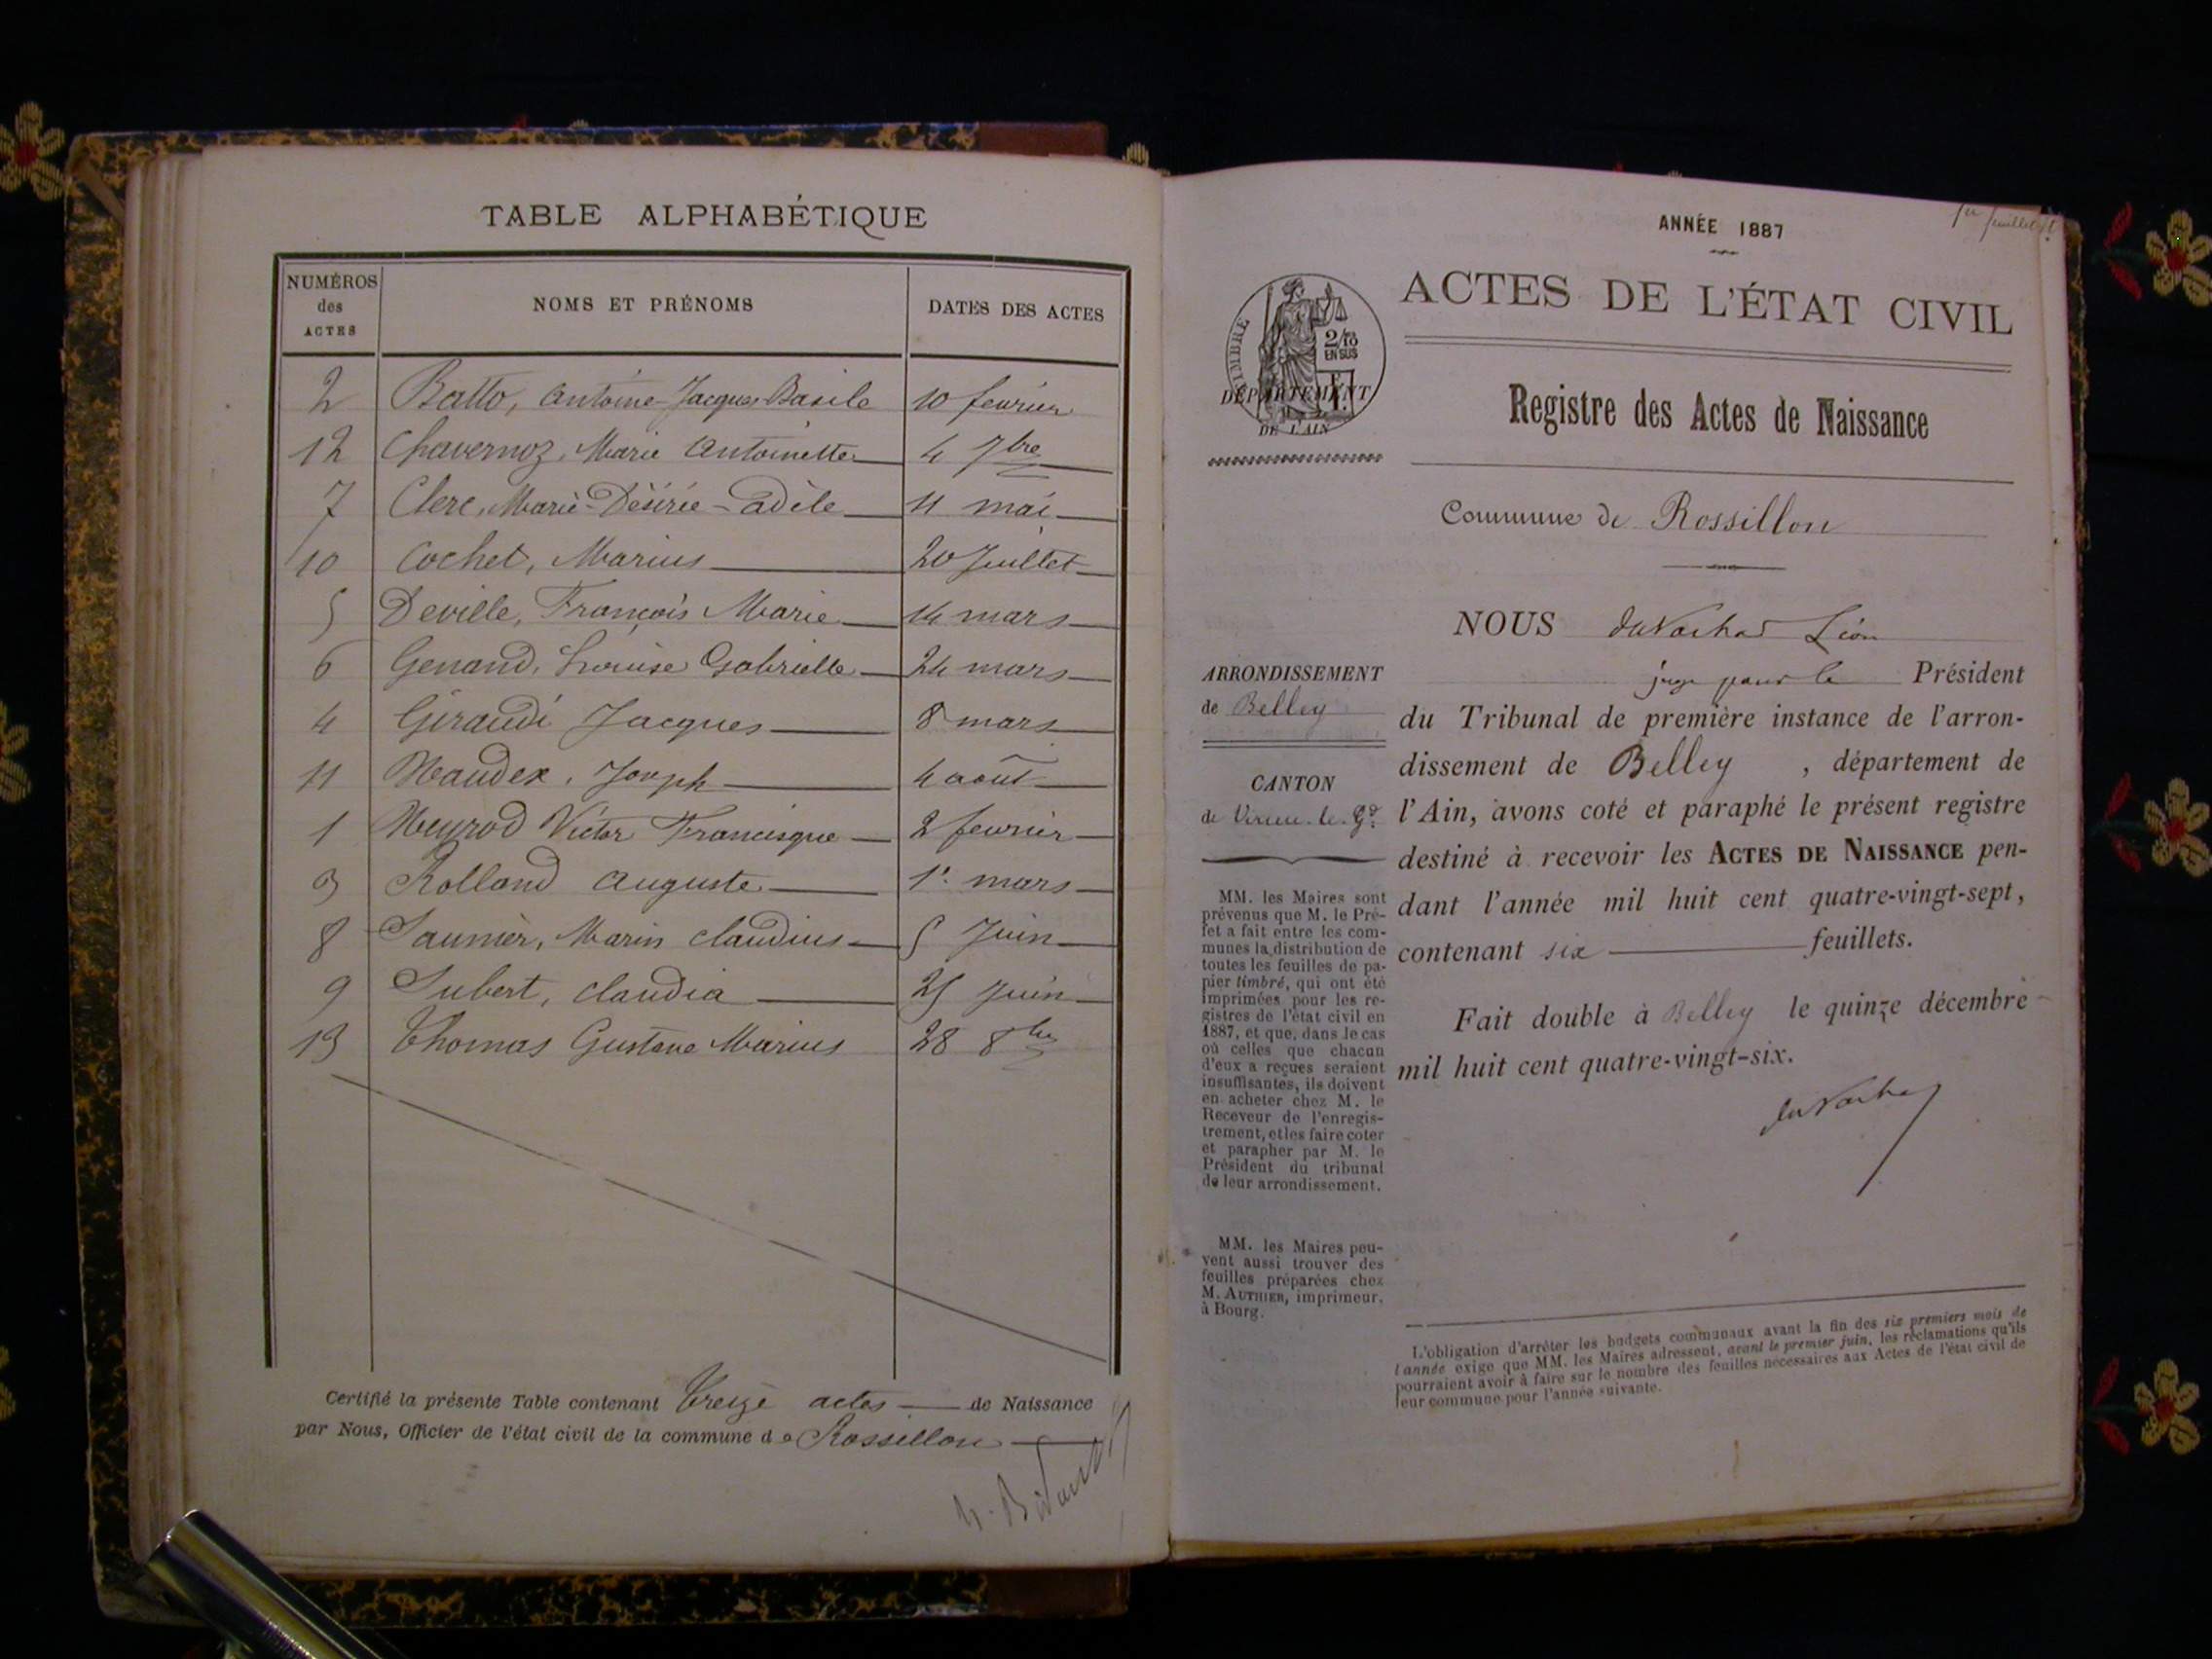 TABLE ALPHABÉTIQUE
NUMÉROS des ACTES NOMS ET PRÉNOMS DATES DES ACTES
2 Batto, Antoine-Jacques Basile 10 février
12 Chavernoz, Marie Antoinette 4 7bre
7 Clerc, Marie-Désirée-Adèle 11 mai
10 Cochet, Marius 20 Juillet
5 Deville, François Marie 14 mars
6 Genand, Louise Gabrielle 24 mars
4 Giraudi Jacques 8 mars
11 Maudex, Joseph 4 août
1 Meyrod Victor Francisque 2 février
3 Rolland Auguste 1er mars
8 Saunier, Marin Claudius 5 Juin
9 Subert, Claudia 25 Juin
13 Thomas Gustave Marius 28 8bre
Certifié la présente Table contenant Treize actes de Naissance
par Nous, Officier de l'état civil de la commune de Rossillon
1er feuillet
ANNÉE 1887
ACTES DE L'ÉTAT CIVIL
TIMBRE
2/10
EN SUS
DÉPARTEMENT
DE L'AIN
Registre des Actes de Naissance
Commune de Rossillon
ARRONDISSEMENT
de Belley
CANTON
de Virieu-le-Gd
MM. les Maires sont
prévenus que M. le Pré-
fet a fait entre les com-
munes la distribution de
toutes les feuilles de pa-
pier timbré, qui ont été
imprimées pour les re-
gistres de l'état civil en
1887, et que, dans le cas
où celles que chacun
d'eux a reçues seraient
insuffisantes, ils doivent
en acheter chez M. le
Receveur de l'enregis-
trement, et les faire coter
et parapher par M. le
Président du tribunal
de leur arrondissement.
MM. les Maires peu-
vent aussi trouver des
feuilles préparées chez
M. AUTHIER, imprimeur,
à Bourg.
NOUS Léon
juge pour le Président
du Tribunal de première instance de l'arron-
dissement de Belley, département de
l'Ain, avons coté et paraphé le présent registre
destiné à recevoir les ACTES DE NAISSANCE pen-
dant l'année mil huit cent quatre-vingt-sept,
contenant six feuillets.
Fait double à Belley le quinze décembre
mil huit cent quatre-vingt-six.
L'obligation d'arrêter les budgets communaux avant la fin des six premiers mois de
l'année exige que MM. les Maires adressent, avant le premier juin, les réclamations qu'ils
pourraient avoir à faire sur le nombre des feuilles nécessaires aux Actes de l'état civil de
leur commune pour l'année suivante.